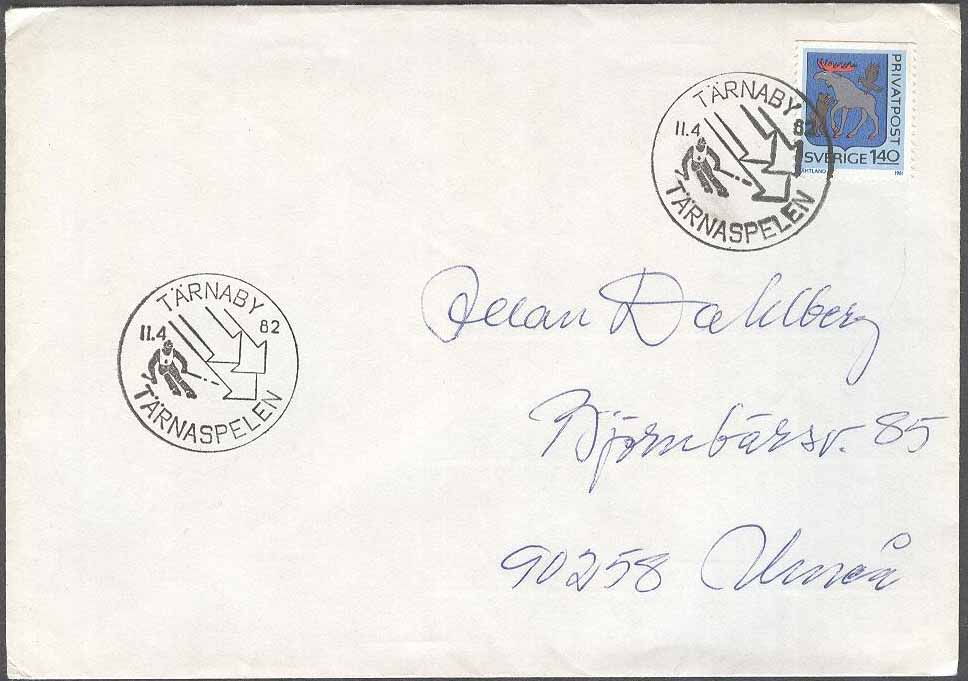 PRIVATPOST
SVERIGE 140
1981
TÄRNABY
11.4 82
TÄRNASPELEN
TÄRNABY
11.4 82
TÄRNASPELEN
Allan Dahlberg
Björnbärsv. 85
90258 Umeå